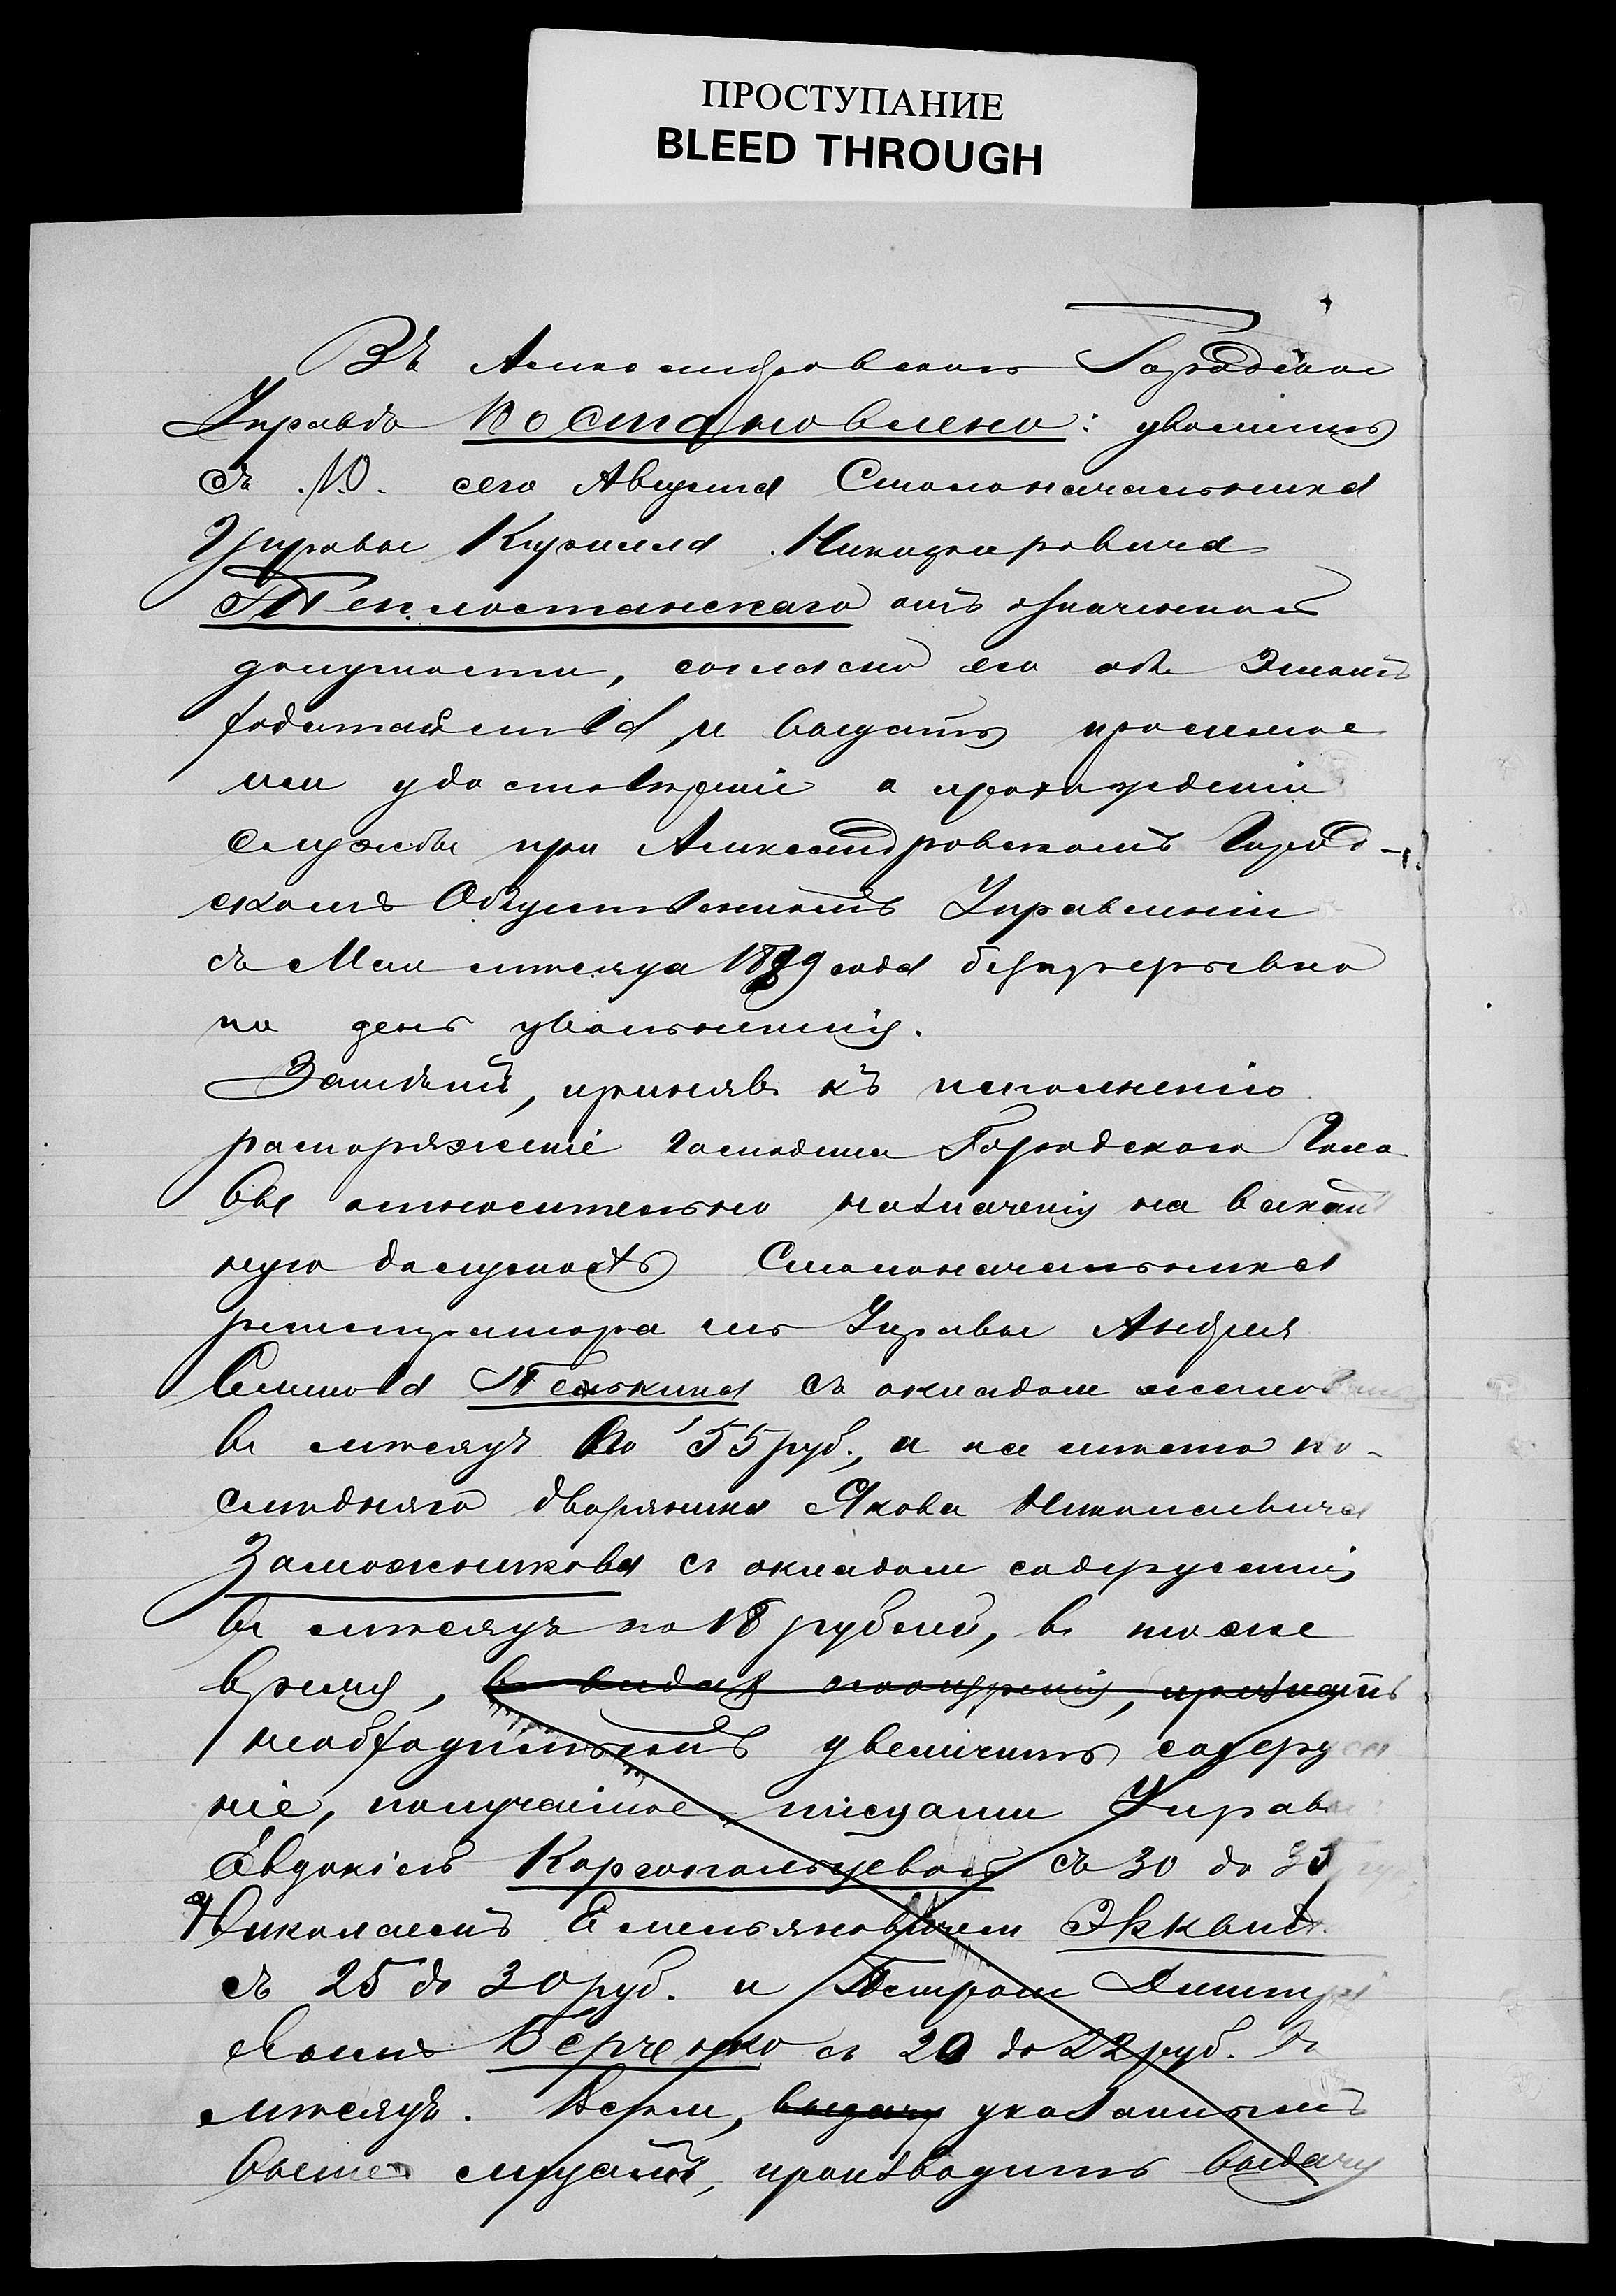 ПРОСТУПАНИЕ
BLEED THROUGH
Въ Александровской Городской
Управѣ Постановлено: уволить
съ 10. сего Августа Столоначальника
Управы Кирилла Никифоровича
Теплостанскаго отъ означенной
должности, согласно его объ этомъ
ходатайства, и выдать просимое
имъ удостовѣреніе о прохожденіи
службы при Александровскомъ Город-
скомъ Общественномъ Управленіи
съ Мая мѣсяца 1889 года безпрерывно
по день увольненія.
Затѣмъ, принявъ къ исполненію
распоряженіе Господина Городского Голо
вы относительно назначенія на вакант
ную должность Столоначальника
регистратора Управы Андрея
Пенькина съ окладомъ жалов
въ мѣсяцъ по 55 руб., а на мѣсто по-
слѣдняго дворянина Якова Николаевича
Заможникова съ окладомъ содержанія
въ мѣсяцъ по 18 рублей, въ тоже
время, въ видахъ поощренія, признать
необходимымъ увеличить содержа
ніе, получаемое писцами Управы
Евдокіей Каргопольцевой съ 30 до 35
Николаемъ Емельяновичем Эккви
съ 25 до 30 руб. и Петром Дмитрі
евымъ Берченко съ 20 до 22 руб. въ
мѣсяцъ. выдачу указаннымъ
выше лицамъ, производить выдачу